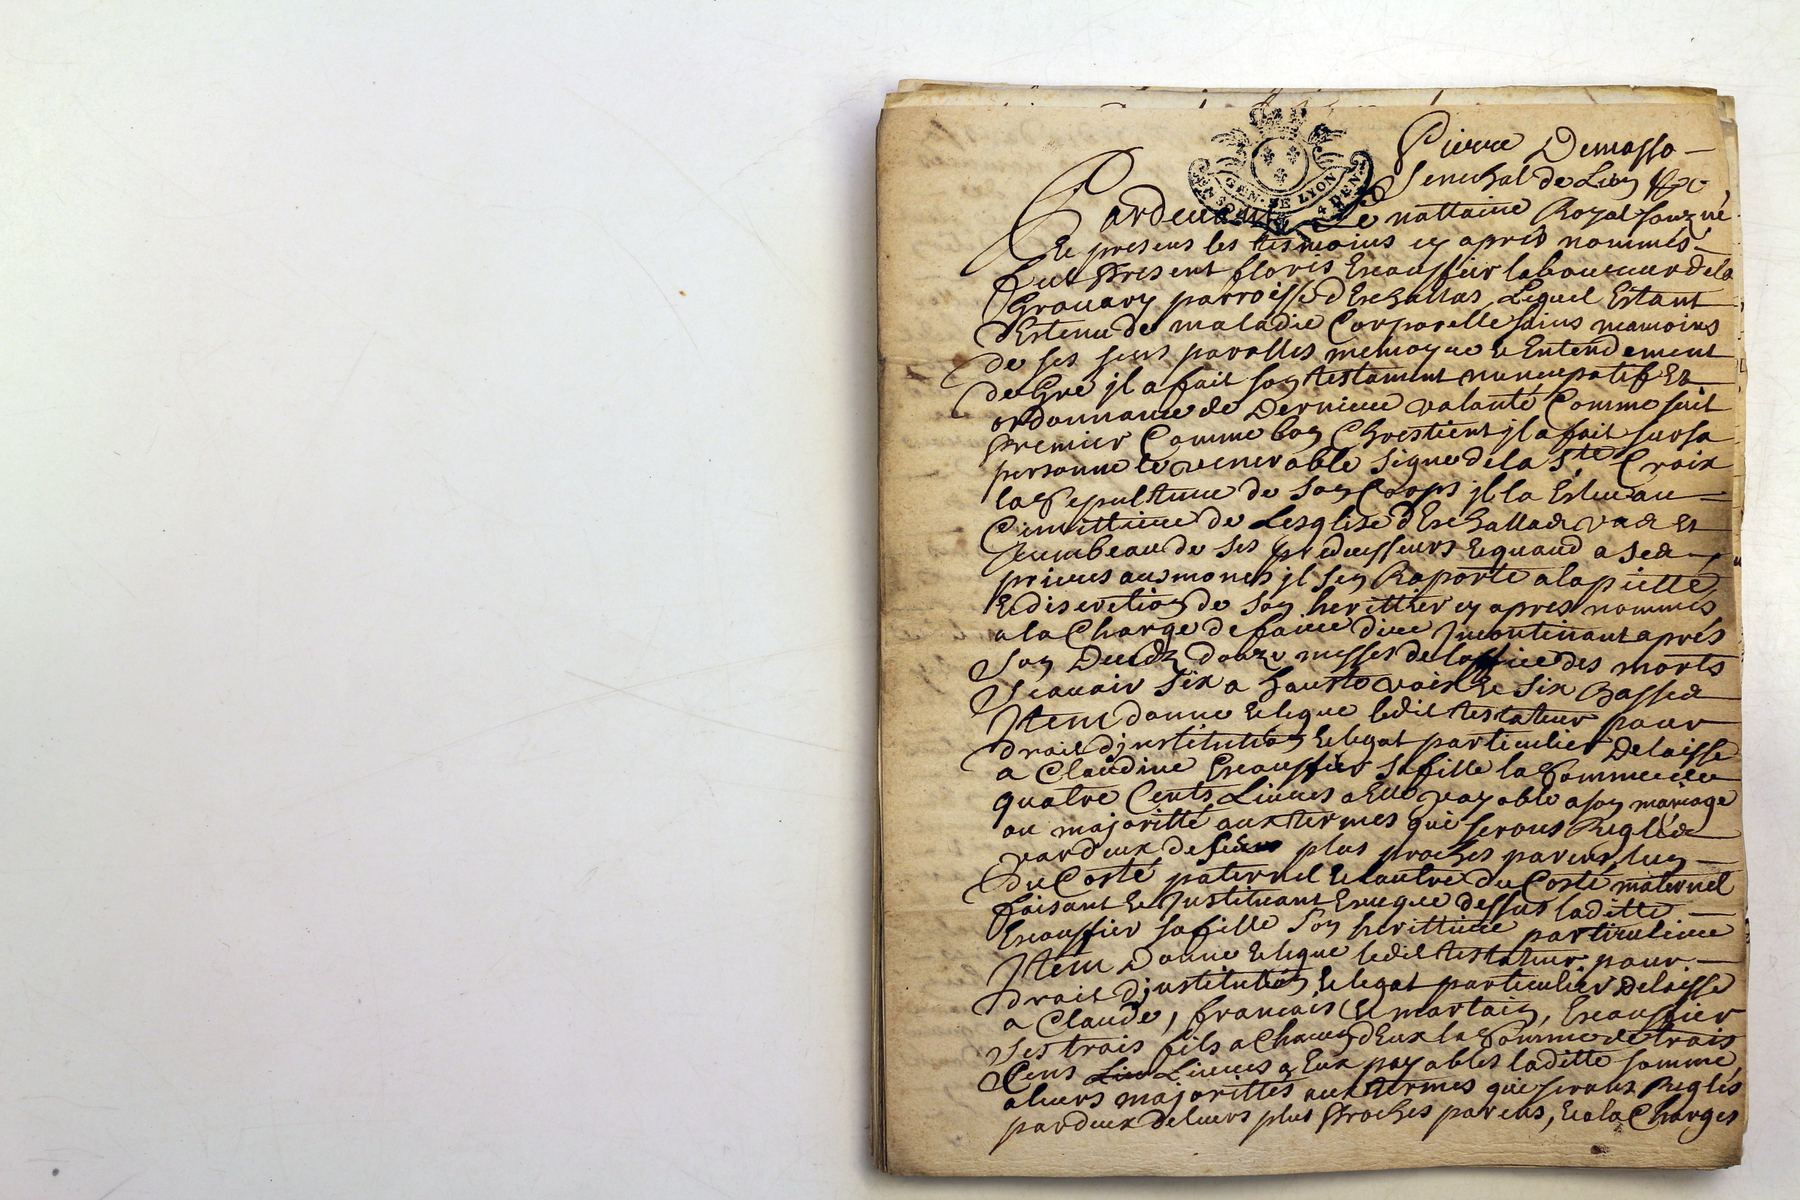 Pierre Demasso
GEN. DE LYON
4 DEN.
Senechal de Lion
Pardevant Le nottaire Royal souzné
Et presens les tesmoins cy apres nommés
fut Present floris Escouffier laboureur de la
Grouary parroisse d'Eschallas, Lequel Estant
destenu de maladie Corporelle sains neamoins
de ses sens parolles memoyre et Entendement
de Gre jl a fait son testament nuncupatif Et
ordonnance de Derniere valanté Comme suit
Premier Comme bon Chrestient jl a fait sur sa
personne le venerable signe de la Ste Croix
la sepulture de son Corps jl la Esleu au
Cimittiere de Lesglise d'Eschallas vas et
Tumbeau de ses predecesseurs Et quand a ses
prieres ausmones jl sen Raporte a la piette
Et discretion de son herittier cy apres nommés
a la Charge de faire dire Jncontinant aprés
son Decedz douze messes de loffice des morts
scavoir six a hauste voix Et six Basses
Jtem donne Et legue ledit testateur pour
droit djnstitution Et legat particulier Delaisse
a Claudine Escouffier sa fille la somme de
quatre Cents Livres a Elle payable a son mariage
ou majoritté aux termes qui serons Reglés
par deux de ses plus proches parens, lun
du Costé paternel Et lautre du Costé maternel
faisant Et Justituant Eneque dessus laditte
Escouffier sa fille son herittiere particuliere
Jtem Donne Et legue ledit testateur pour
droit djnstitution Et legat particulier Delaisse
a Claude, francois Et martain, Escouffier
ses trois fils a Chacun dEux la somme de trois
Cens Liv Livres a Eux payables laditte somme
a leurs majorittés aux termes qui serons Reglés
par deux de leurs plus Proches parens, Et a la Charges